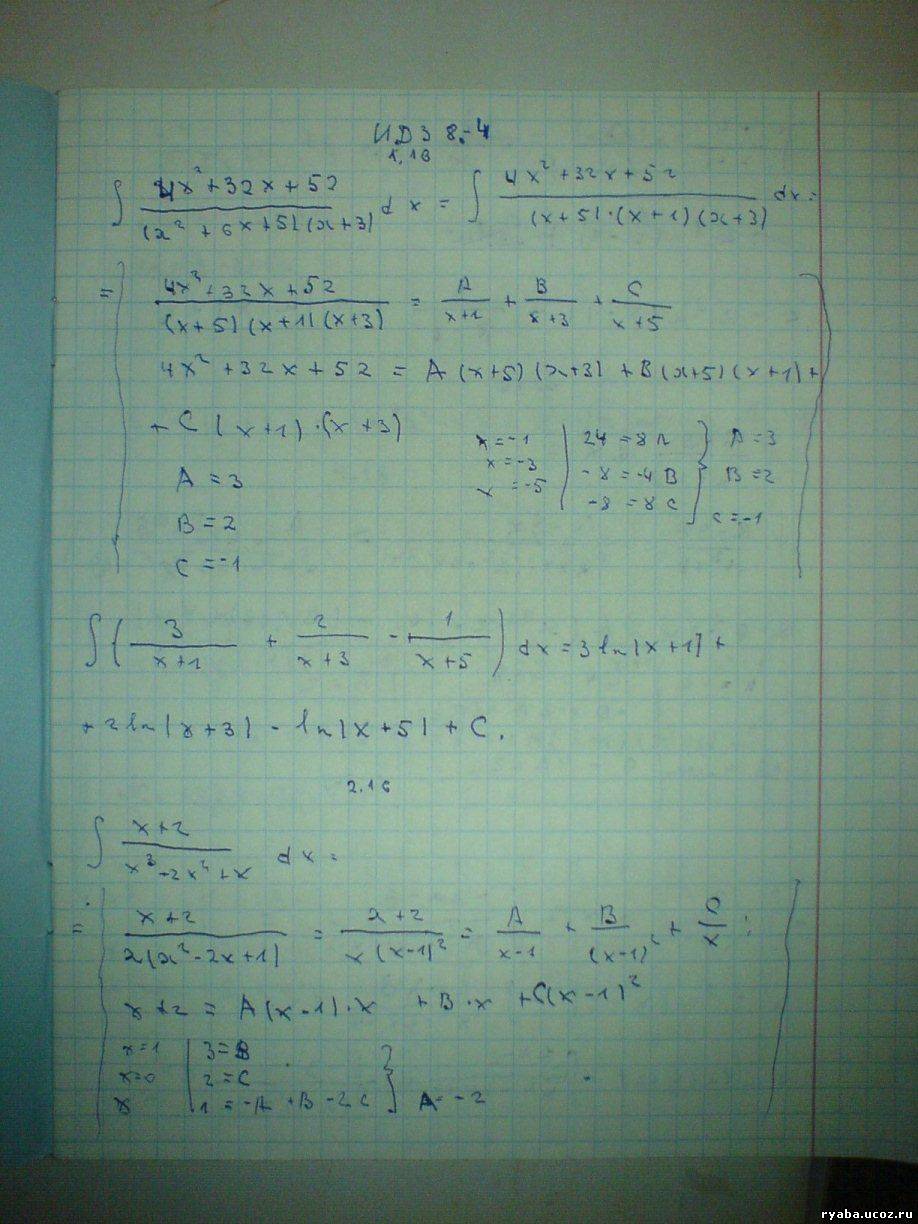 ИДЗ 8.-4
1,16
∫ (4x² + 32x + 52)/((x² + 6x + 5)(x+3)) dx = ∫ (4x² + 32x + 52)/((x+5)·(x+1)(x+3)) dx =
= (4x² + 32x + 52)/((x+5)(x+1)(x+3)) = A/(x+1) + B/(x+3) + C/(x+5)
4x² + 32x + 52 = A(x+5)(x+3) + B(x+5)(x+1) +
+ C(x+1)·(x+3)
x = -1 | 24 = 8A } A = 3
x = -3 | -8 = -4B } B = 2
x = -5 | -8 = 8C } C = -1
A = 3
B = 2
C = -1
∫(3/(x+1) + 2/(x+3) - 1/(x+5)) dx = 3 ln|x+1| +
+ 2 ln|x+3| - ln|x+5| + C.
2.16
∫ (x+2)/(x³ - 2x² + x) dx =
= (x+2)/(x(x² - 2x + 1)) = (x+2)/(x(x-1)²) = A/(x-1) + B/(x-1)² + C/x ;
x + 2 = A(x-1)·x + B·x + C(x-1)²
x = 1 | 3 = B
x = 0 | 2 = C
x | 1 = -A + B - 2C } A = -2
ryaba.ucoz.ru